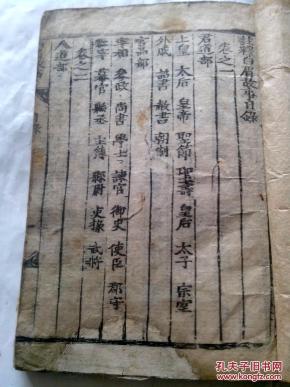 故事目錄
卷之一
君道部
上皇 太后 皇帝 聖節 聖壽 皇后 太子 宗室
外戚 詔書 赦書 朝制
官品部
宰相 參政 尚書 學士 諫官 御史 使臣 郡守
幕官 縣丞 主簿 縣尉 吏掾 武將
卷之二
人道部
孔夫子旧书网